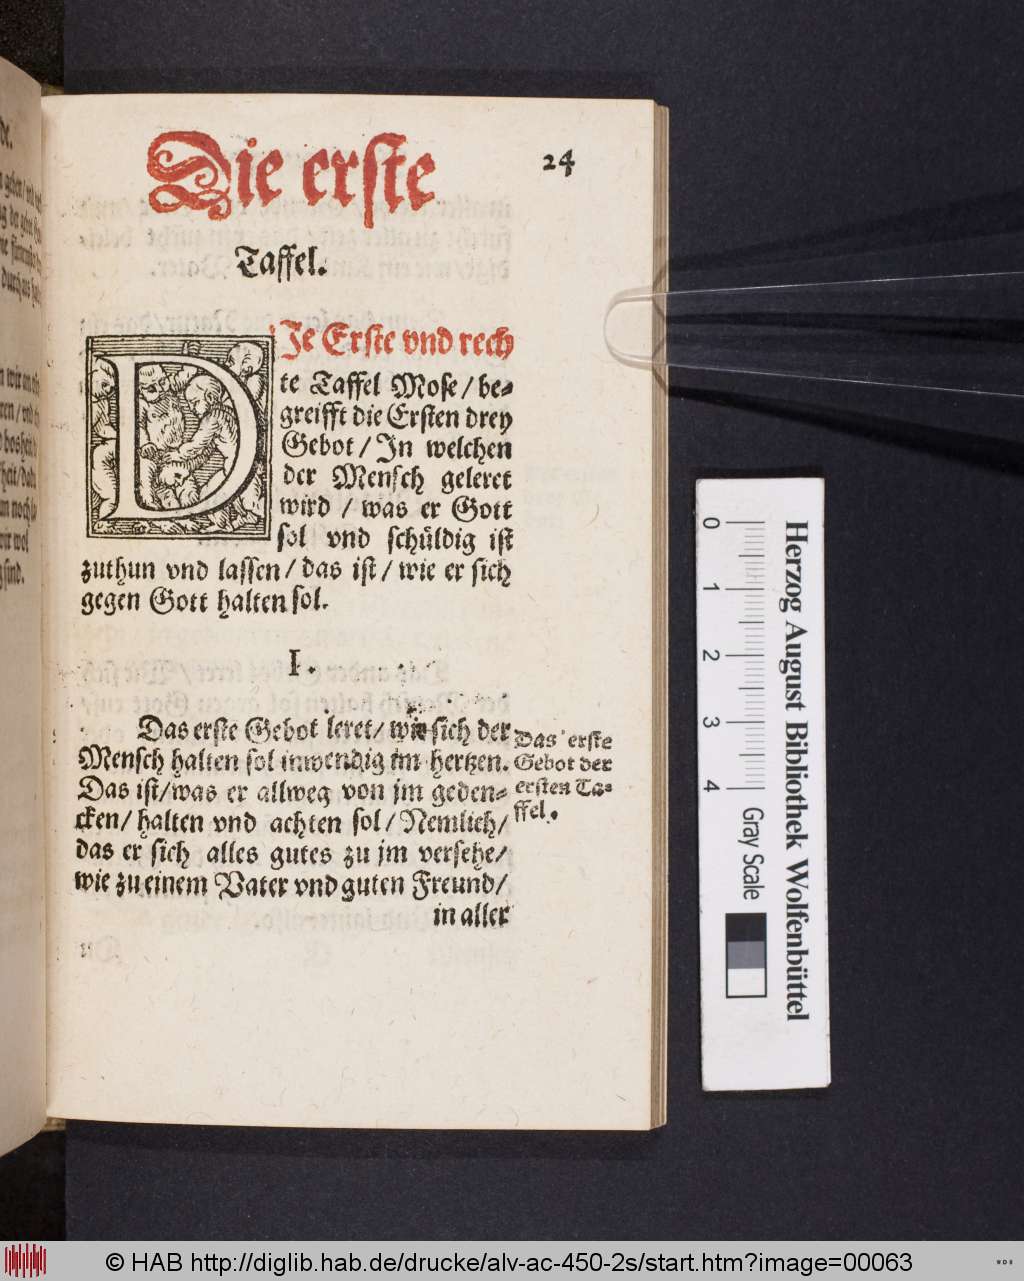 Die erste
24
Taffel.
DJe Erste vnd rech
te Taffel Mose / be⸗
greifft die Ersten drey
Gebot / Jn welchen
der Mensch geleret
wird / was er Gott
sol vnd schüldig ist
zuthun vnd lassen / das ist / wie er sich
gegen Gott halten sol.
I.
Das erste Gebot leret / wie sich der
Mensch halten sol inwendig im hertzen.
Das ist / was er allweg von jm geden⸗
cken / halten vnd achten sol / Nemlich /
das er sich alles gutes zu jm versehe /
wie zu einem Vater vnd guten Freund /
in aller
Das erste
Gebot der
ersten Ta⸗
ffel.
0 1 2 3 4
Gray Scale
Herzog August Bibliothek Wolfenbüttel
© HAB http://diglib.hab.de/drucke/alv-ac-450-2s/start.htm?image=00063